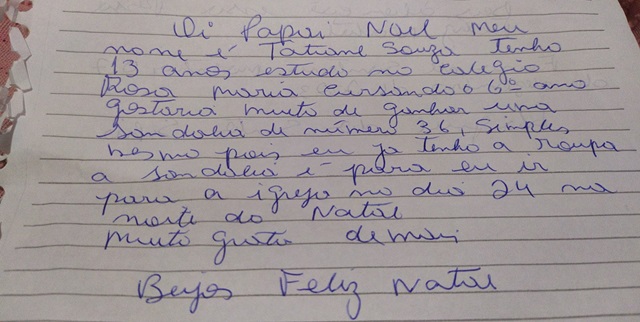 Oi Papai Noel meu
nome é Tatiane Souza tenho
13 anos estudo no colégio
Rosa maria cursando o 6º ano
gostaria muito de ganhar uma
sandalia de número 36, simples
mesmo pois eu ja tenho a roupa
a sandalia é para eu ir
para a igreja no dia 24 na
noite do Natal
muito grata demais
Beijos Feliz Natal